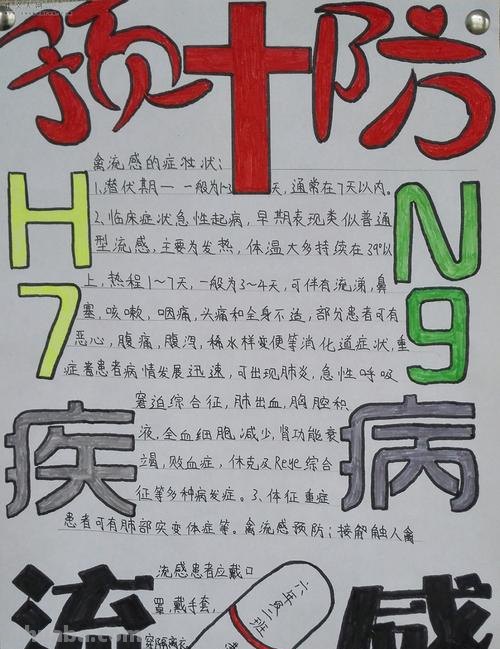 预防
禽流感的症状状:
1.潜伏期一 一般为1-3 天,通常在7天以内。
2、临床症状急性起病,早期表现类似普通
型流感,主要为发热,体温大多持续在39°以
上,热程1~7天,一般为3~4天,可伴有流涕,鼻
塞,咳嗽,咽痛,头痛和全身不适,部分患者可有
恶心,腹痛,腹泻,稀水样变便等消化道症状,重
症着患者病情发展迅速,可出现肺炎,急性呼吸
窘迫综合征,肺出血,胸腔积
液,全血细胞减少,肾功能衰
竭,败血症,休克及Reye综合
征等多种病发症。3、体征重症
患者可有肺部实变体症等。禽流感预防;接解触人禽
流感患者应戴口
罩,戴手套,
穿隔离衣
H7
N9
疾病
流感
六年级二班